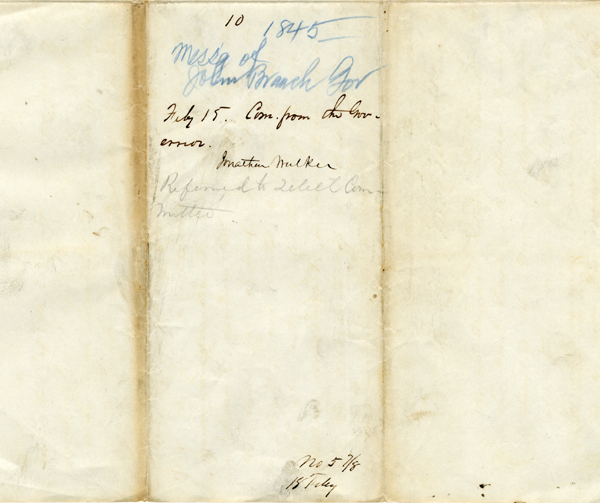 10
1845
Messg of
John Branch Gov
Feby 15. Com. from the Gov-
ernor.
Jonathan Walker
Referred to Select Com-
mittee
No 5 7/8
15 Feby